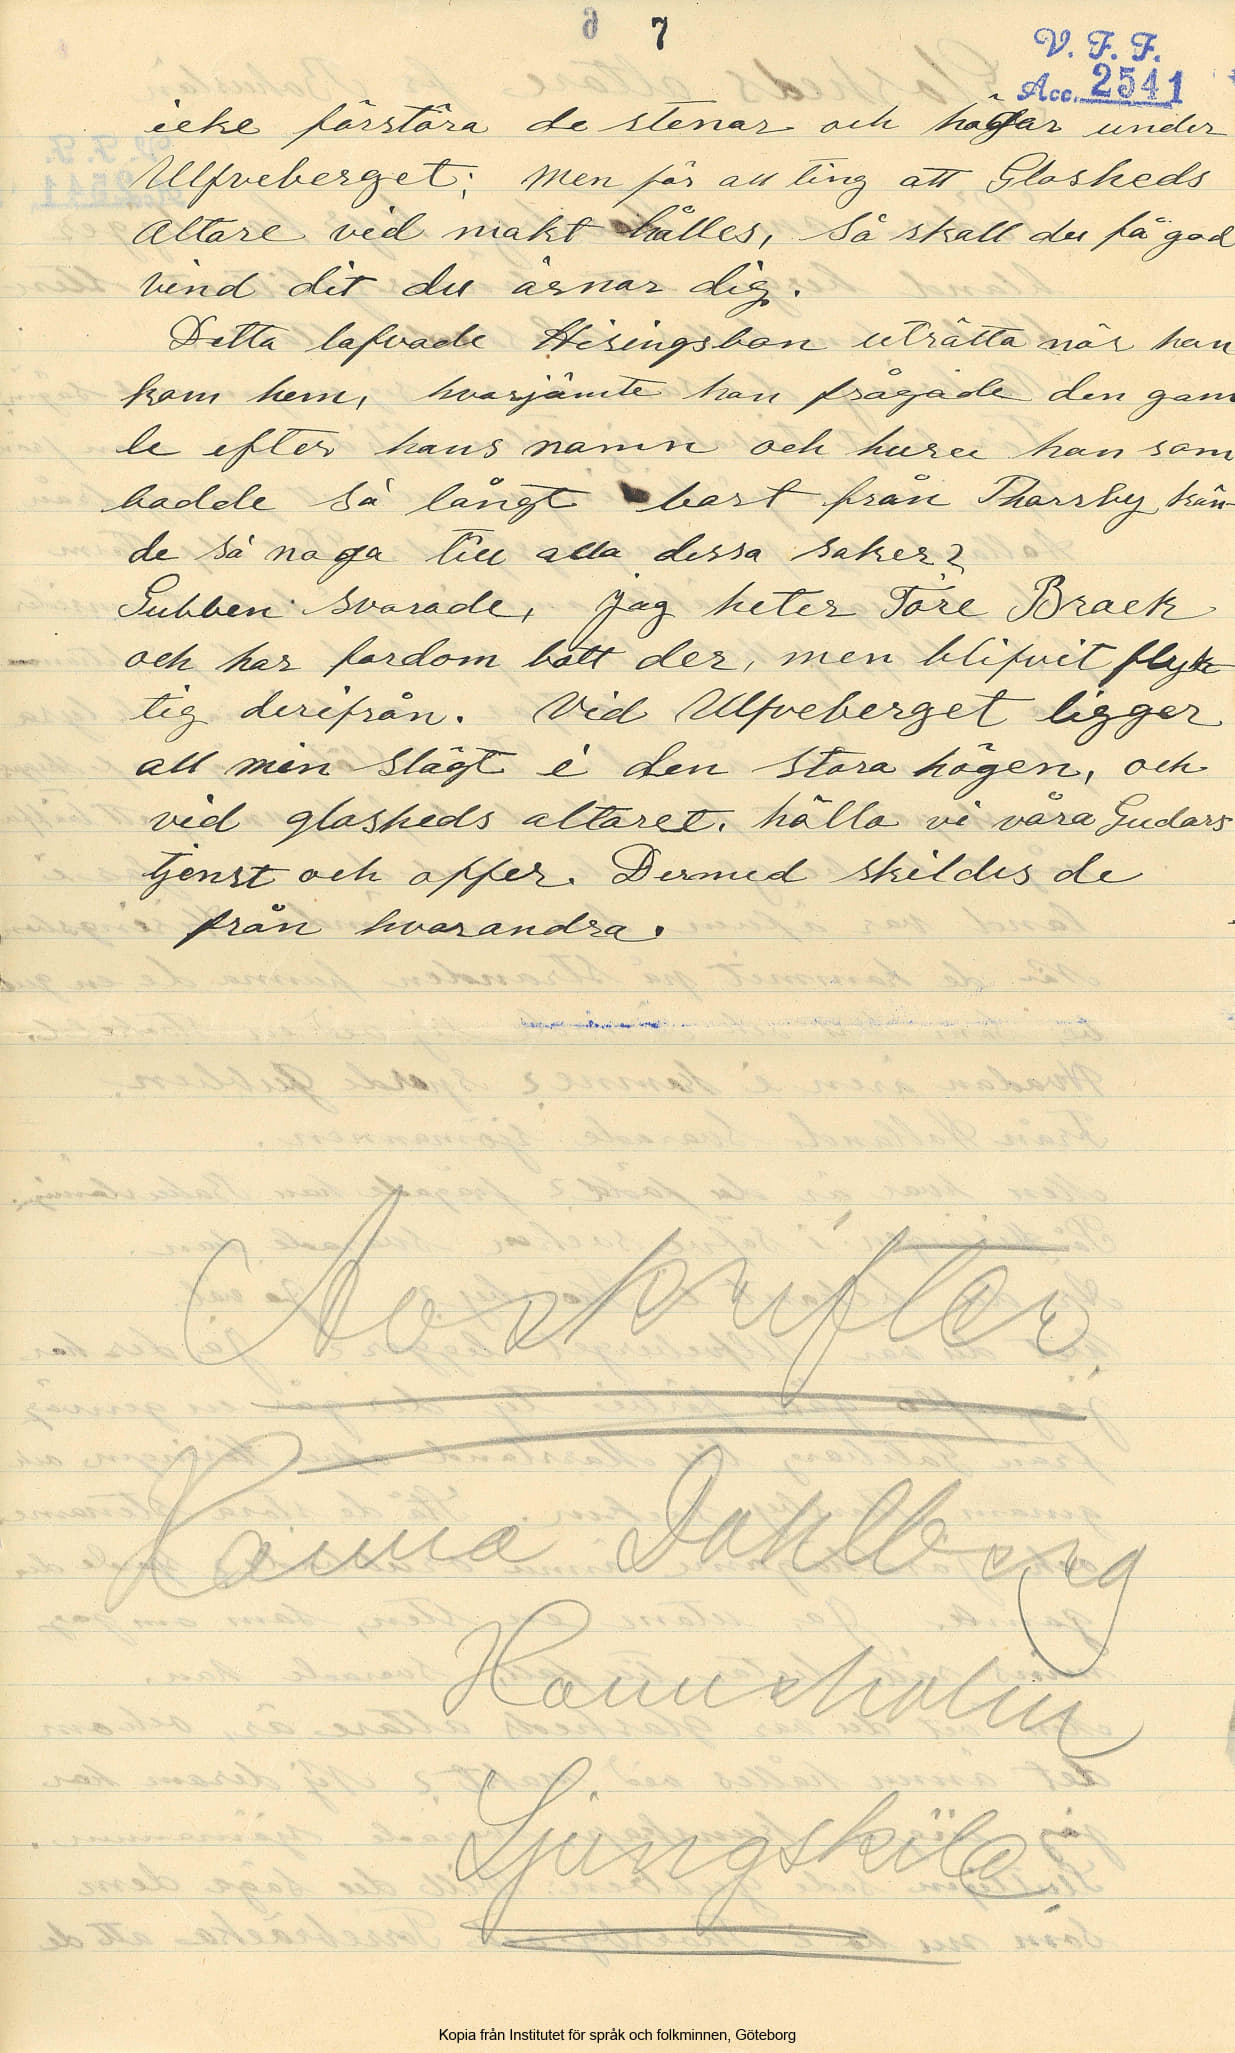 7
V. F. F.
Acc. 2541
icke förstöra de stenar och högar under
Ulfveberget; men för all ting att Glosheds
Altare vid makt hålles, så skall du få god
vind dit du ärnar dig.
Detta lofvade Hisingsbon uträtta när han
kom hem, hvarjämte han frågade den gam
le efter hans namn och huru han som
bodde så långt bort från Thorsby kän-
de så noga till alla dessa saker?
Gubben svarade, jag heter Töre Brack
och har fordom bott der, men blifvit flyk
tig derifrån. Vid Ulfveberget ligger
all min slägt i den stora högen, och
vid glosheds altaret. hålla vi våra Gudars
tjenst och offer. Dermed skildes de
från hvarandra.
Avskrifter.
Hanna Dahlberg
Ljungskile
Kopia från Institutet för språk och folkminnen, Göteborg